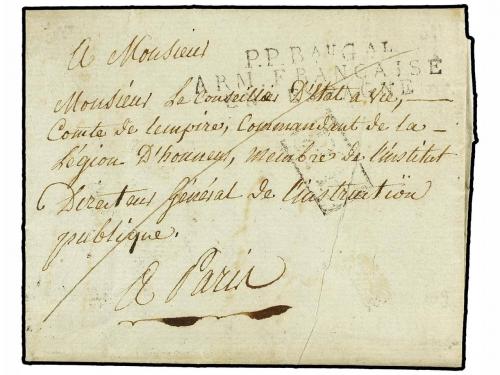 A Monsieur
P.P. BAUGAL
ARM. FRANÇAISE
Monsieur Le Conseiller D'Etat à vie,
Comte de l'empire, Commandant de la
Légion D'honneur, membre de l'institut
Directeur Général de l'instruction
publique.
A Paris